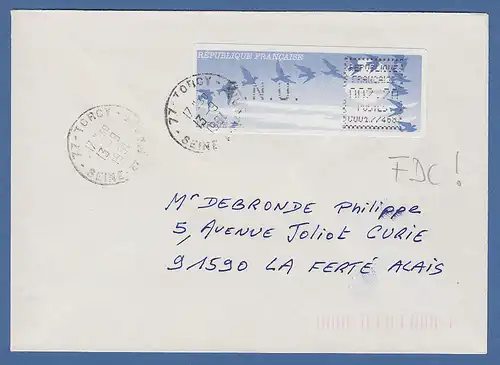 RÉPUBLIQUE FRANÇAISE
RÉPUBLIQUE
FRANÇAISE
N.U.
002,20
POSTES
77-TORCY
SEINE
77-TORCY
SEINE
FDC!
Mr DEBRONDE Philippe
5, AVENUE Joliot CURIE
91590 LA FERTÉ ALAIS